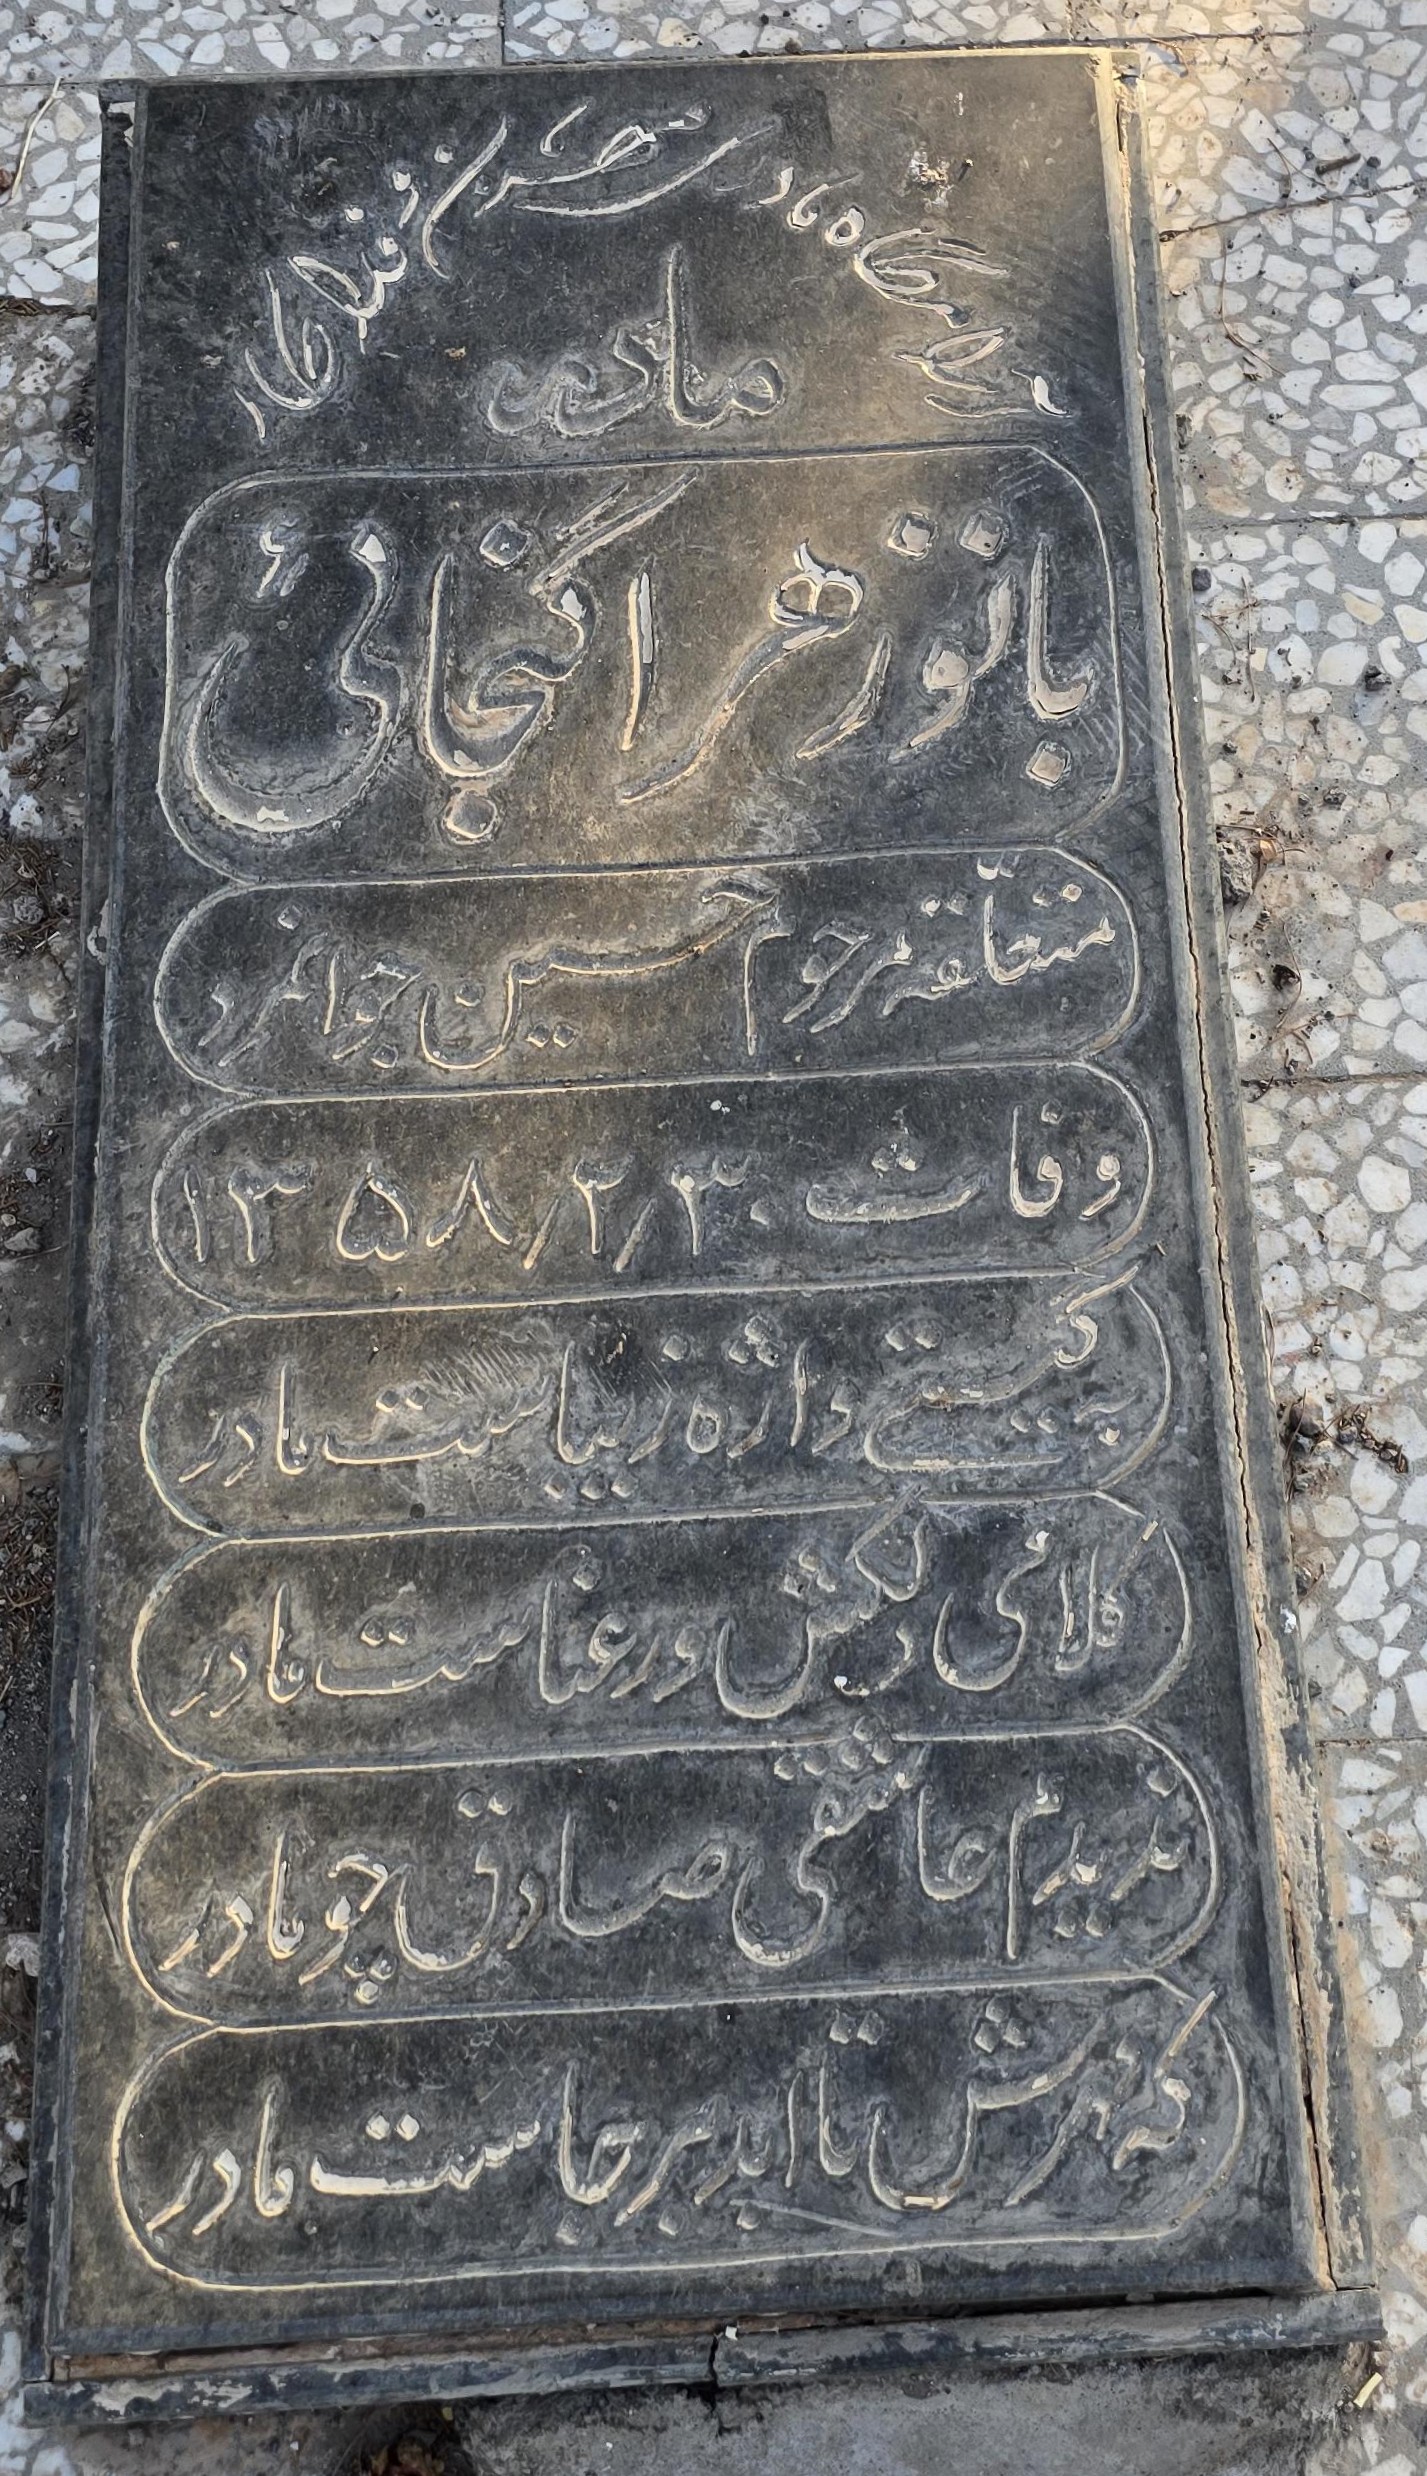 فداکار
بانو زهرا گنجائی
متعلقه مرحوم حسین جوانمرد
وفات ۱۳۵۸/۲/۳۰
به گیتی واژه زیباست مادر
کلامی دلکش و رعناست مادر
ندیدم عاشقی صادق چو مادر
که مهرش تا ابد برجاست مادر